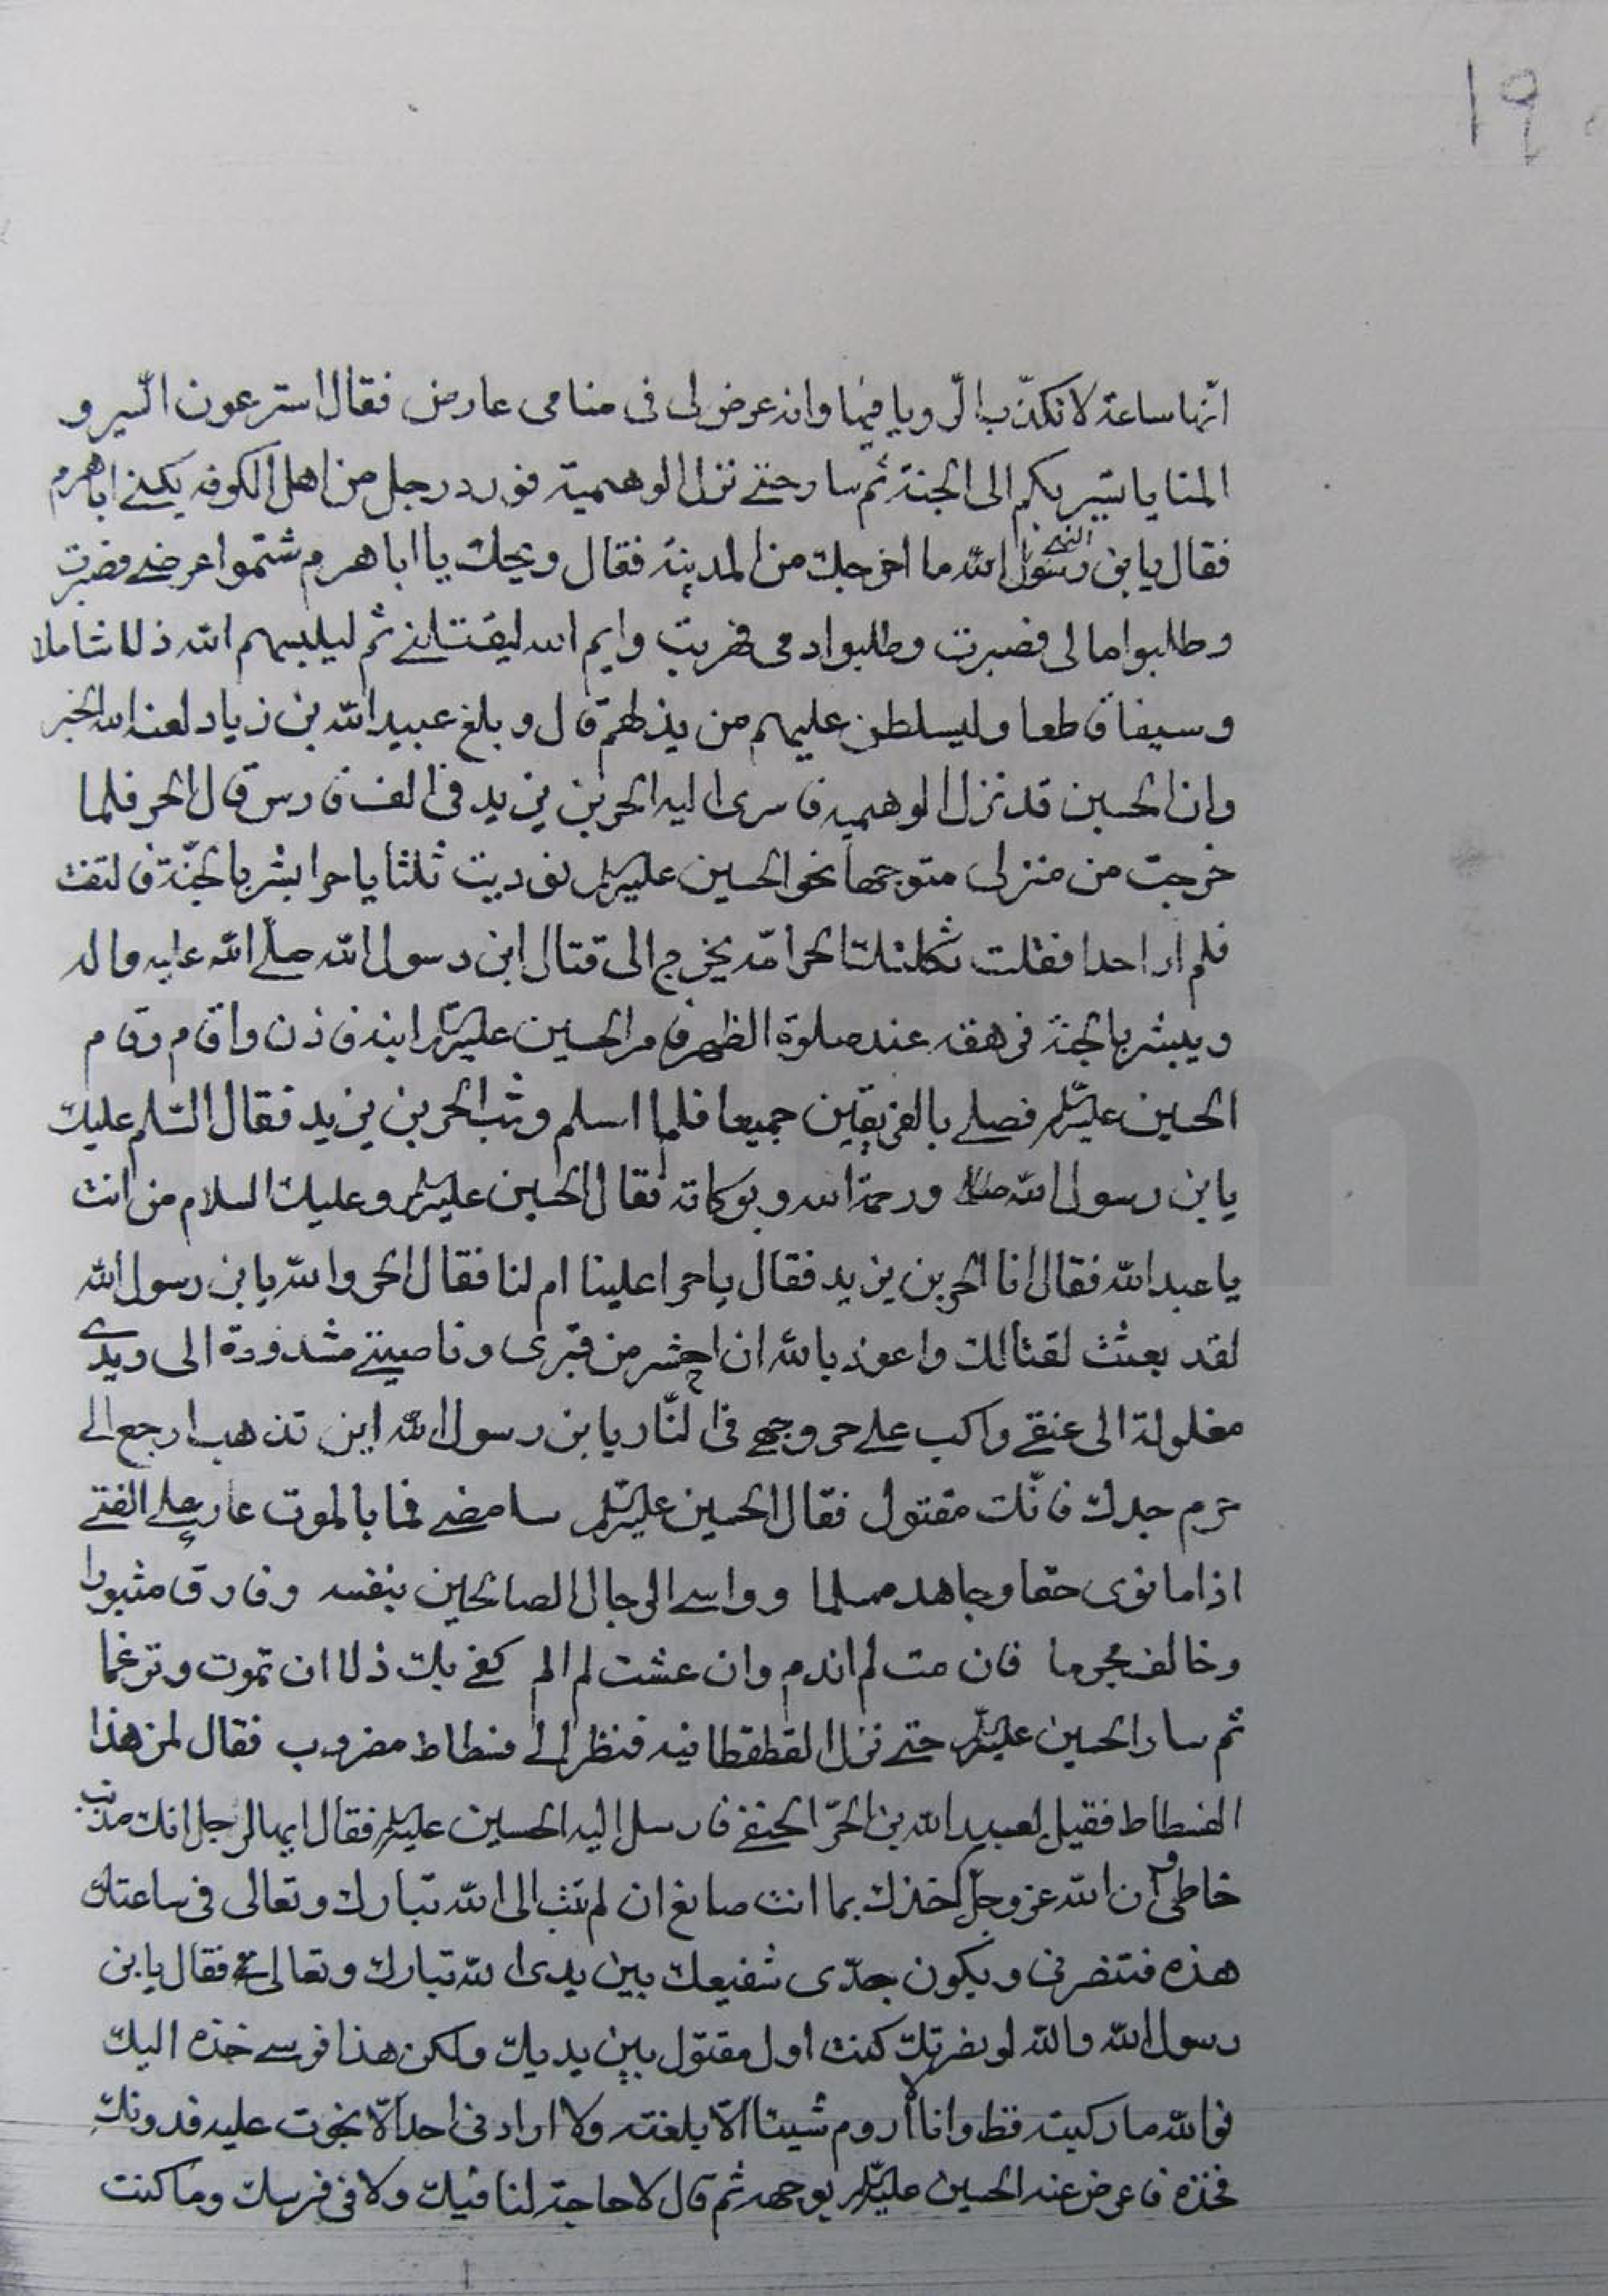 ١٩
انّها ساعة لا تكذّب الرّويا فيها وانه عرض لى فى منامى عارض فقال استرعون السّير و
المنايا تسير بكم الى الجنة ثم سار حتى نزل الوهيمية فورد رجل من اهل الكوفه يكنى اباهرم
فقال يابن النبى رسول الله ما اخرجك من المدينه فقال ويحك يا اباهرم شتموا عرضى فصبرت
وطلبوا مالى فصبرت وطلبوا دمى فهربت وايم الله ليقتلنى ثم ليلبسهم الله ذلا شاملا
وسيفا قاطعا وليسلطن عليهم من يذلهم قال وبلغ عبيد الله بن زياد لعنه الله الخبر
وان الحسين قد نزل الوهميه فاسرى اليه الحر بن يزيد فى الف فارس قال الحر فلما
خرجت من منزلى متوجها نحو الحسين عليه السلم نوديت ثلثا يا حر ابشر بالجنّة فالتفت
فلم ار احدا فقلت ثكلتك الحر امّه يخرج الى قتال ابن رسول الله صلّى الله عليه واله
ويبشر بالجنة فرهقه عند صلوة الظهر فامر الحسين عليه السلم ابنه فاذن واقام وقام
الحسين عليه السلم فصلى بالفريقين جميعا فلما اسلم وثب الحر بن يزيد فقال السّلم عليك
يابن رسول الله ورحمة الله وبركاته فقال الحسين عليه السلم وعليك السلام من انت
يا عبد الله فقال انا الحر بن يزيد فقال يا حر اعلينا ام لنا فقال الحر والله يابن رسول الله
لقد بعثت لقتالك واعوذ بالله ان احشر من قبرى وناصيتى مشدودة الى ويدى
مغلولة الى عنقى واكب على حر وجهى فى النّار يابن رسول الله اين تذهب ارجع الى
حرم جدك فانّك مقتول فقال الحسين عليه السلم سامضى فما بالموت عار على الفتى
اذا ما نوى حقا وجاهد مسلما وواسى الرجال الصالحين بنفسه وفارق مثبورا
وخالف مجرما فان مت لم اندم وان عشت لم الم كفى بك ذلا ان تموت وترغما
ثم سار الحسين عليه السلم حتى نزل القطقطانيه فنظر الى فسطاط مضروب فقال لمن هذا
الفسطاط فقيل لعبيد الله بن الحرّ الحنفى فارسل اليه الحسين عليه السلم فقال ايها الرجل انك مذنب
خاطى وان الله عز وجل آخذك بما انت صانع ان لم تتب الى الله تبارك وتعالى فى ساعتك
هذه فتنصرنى ويكون جدّى شفيعك بين يدى الله تبارك وتعالى فقال يابن
رسول الله والله لو نصرتك كنت اول مقتول بين يديك ولكن هذا فرسى خذه اليك
فوالله ما ركبته قط وانا اروم شيئا الّا بلغته ولا ارادنى احد الّا نجوت عليه فدونك
فخذه فاعرض عنه الحسين عليه السلم بوجهه ثم قال لا حاجة لنا فيك ولا فى فرسك وما كنت